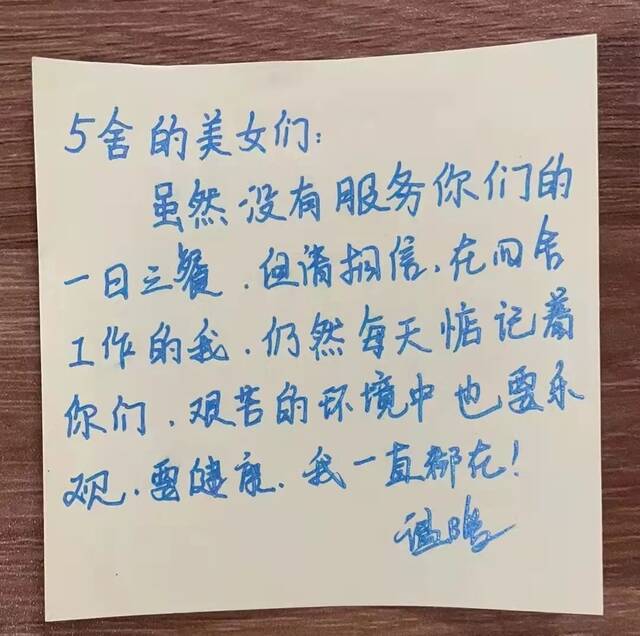 5舍的美女们:
虽然没有服务你们的
一日三餐,但请相信,在四舍
工作的我,仍然每天惦记着
你们,艰苦的环境中也要乐
观,要健康,我一直都在!